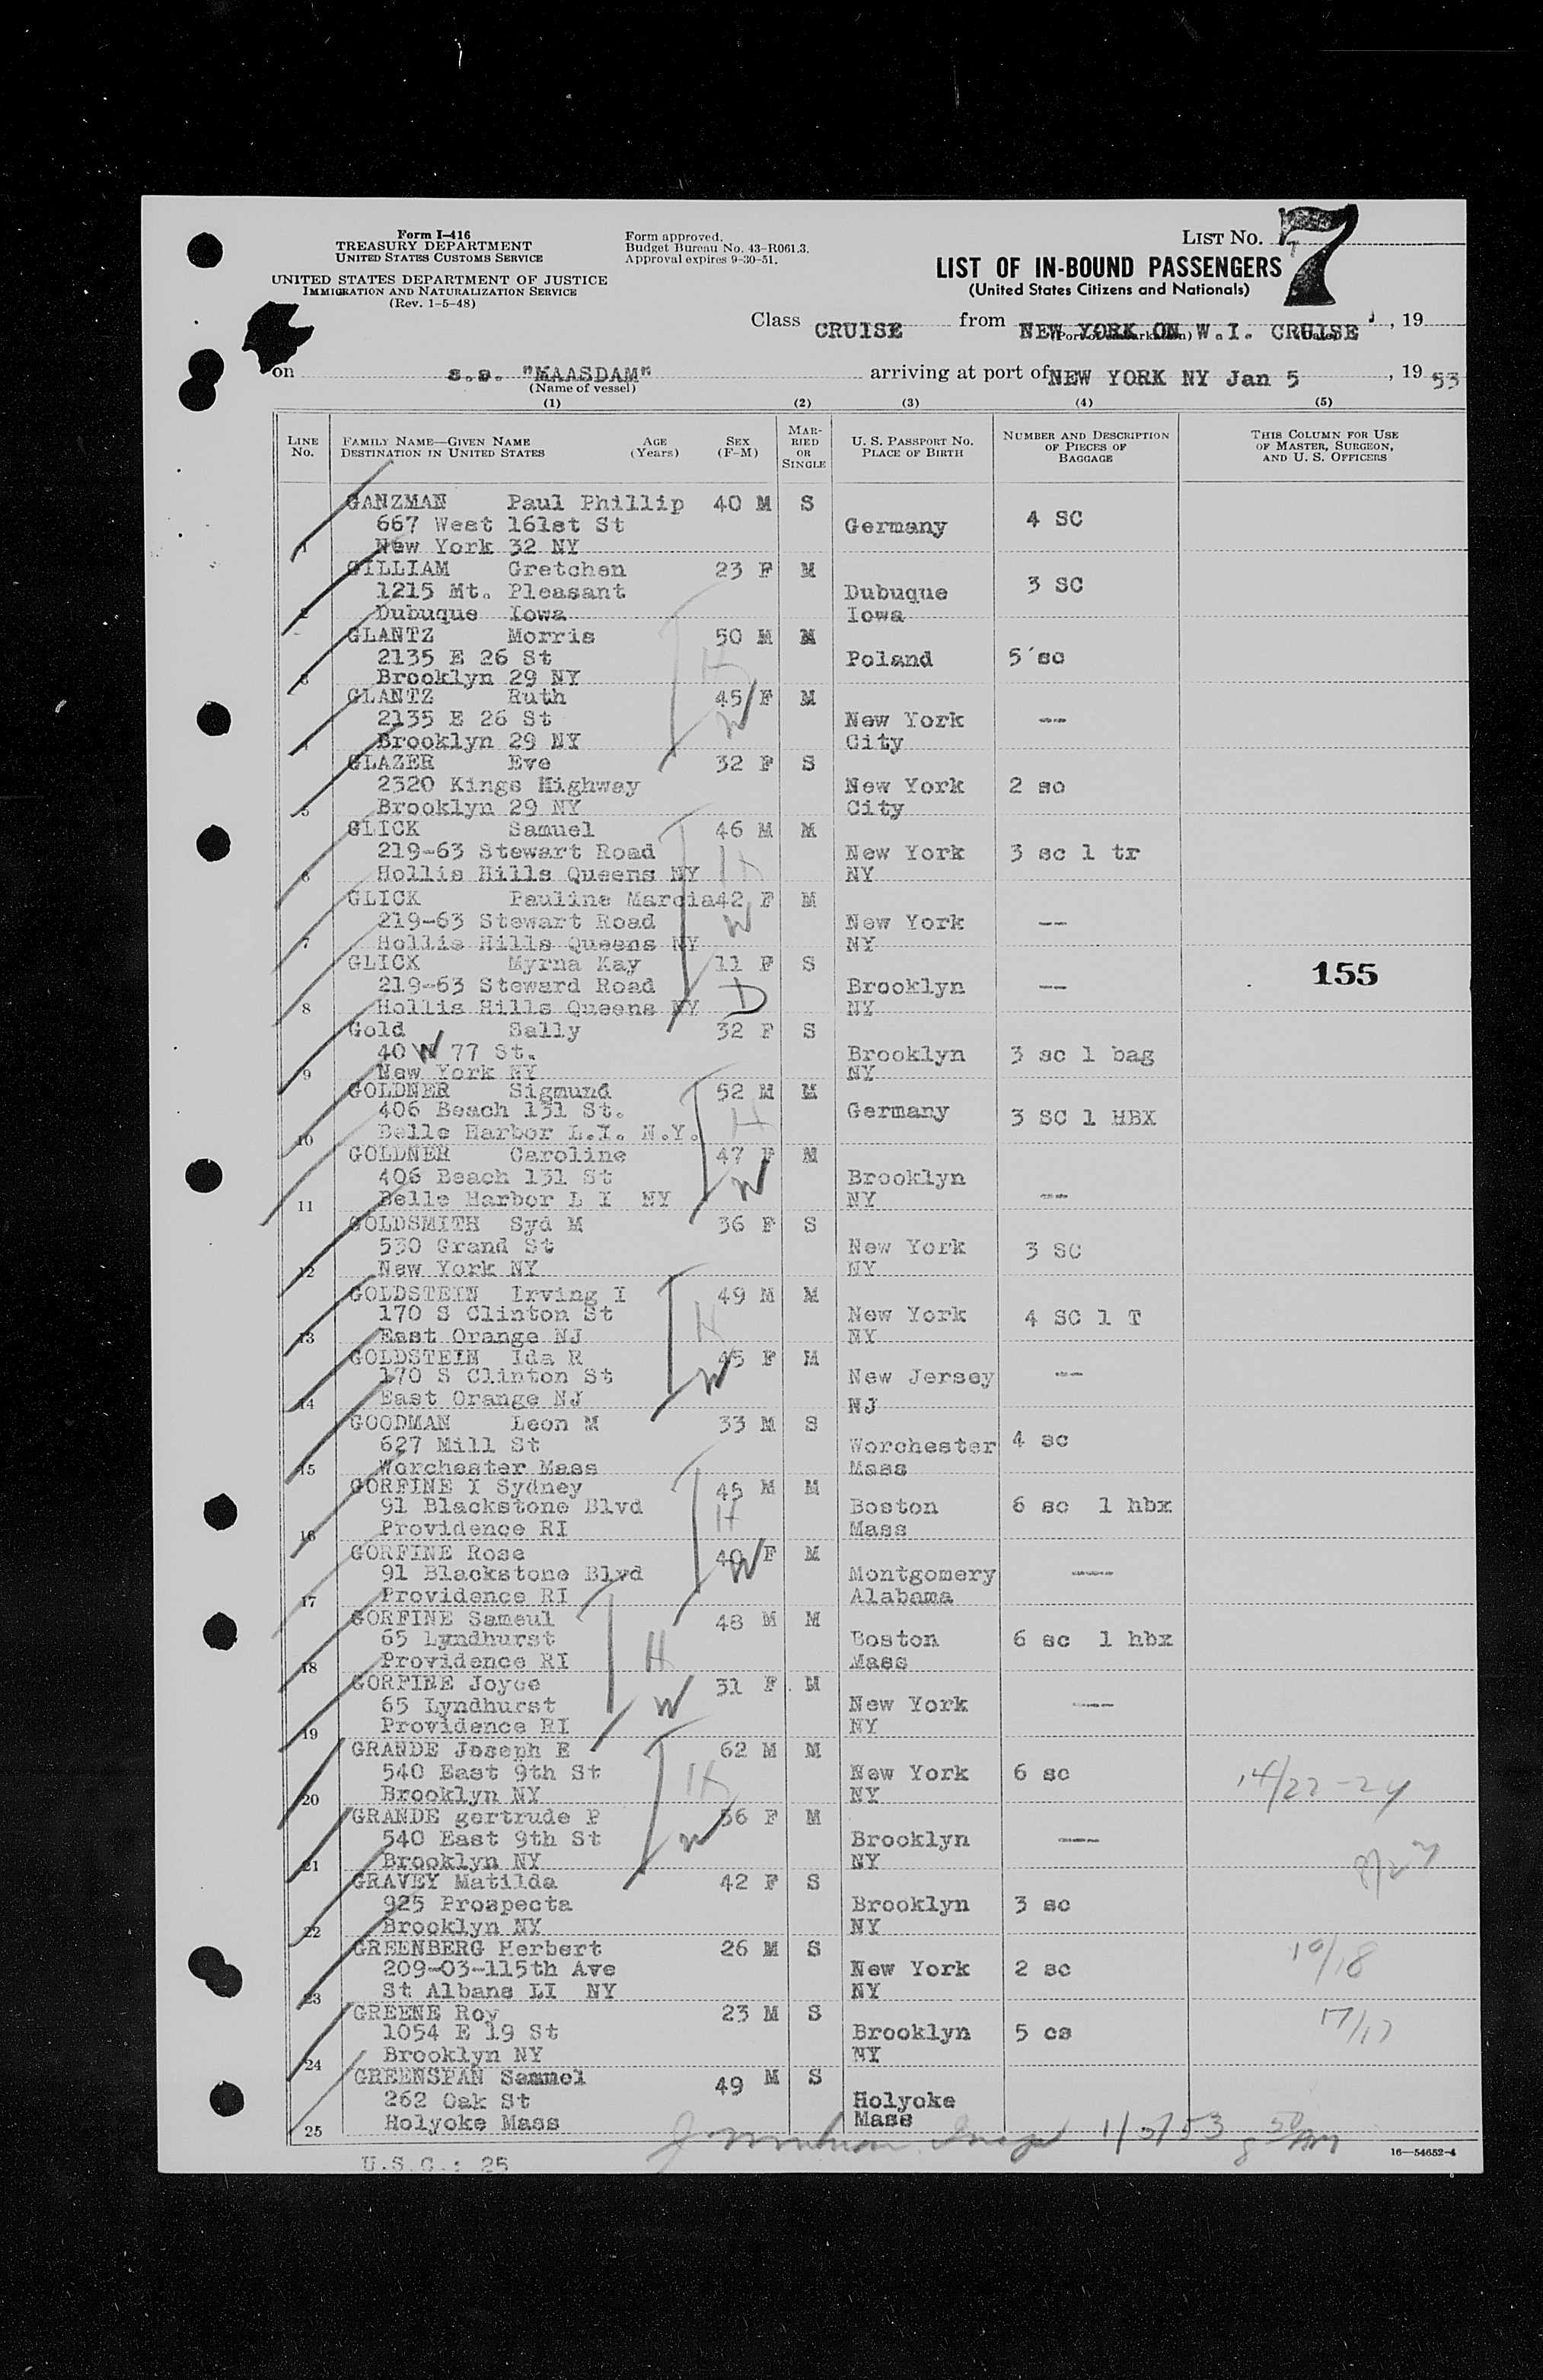 Form I-416
TREASURY DEPARTMENT
UNITED STATES CUSTOMS SERVICE
UNITED STATES DEPARTMENT OF JUSTICE
IMMIGRATION AND NATURALIZATION SERVICE
(Rev. 1-5-48)
Form approved.
Budget Bureau No. 43-R061.3.
Approval expires 9-30-51.
LIST NO. 7
LIST OF IN-BOUND PASSENGERS
(United States Citizens and Nationals)
Class CRUISE from NEW YORK ON W.I. CRUISE , 19
(Port of embarkation) (Date)
on s.s. "MAASDAM" arriving at port of NEW YORK NY Jan 5 , 19 53
(Name of vessel)
(1) (2) (3) (4) (5)
LINE No. FAMILY NAME—GIVEN NAME DESTINATION IN UNITED STATES AGE (Years) SEX (F-M) MARRIED OR SINGLE U. S. PASSPORT NO. PLACE OF BIRTH NUMBER AND DESCRIPTION OF PIECES OF BAGGAGE THIS COLUMN FOR USE OF MASTER, SURGEON, AND U. S. OFFICERS
GANZMAN Paul Phillip 40 M S
667 West 161st St Germany 4 SC
1 New York 32 NY
GILLIAM Gretchen 23 F M
1215 Mt. Pleasant Dubuque 3 SC
2 Dubuque Iowa Iowa
GLANTZ Morris 50 M M
2135 E 26 St Poland 5 sc H
3 Brooklyn 29 NY
GLANTZ Ruth 45 F M
2135 E 26 St New York -- W
4 Brooklyn 29 NY City
GLAZER Eve 32 F S
2320 Kings Highway New York 2 sc
5 Brooklyn 29 NY City
GLICK Samuel 46 M M
219-63 Stewart Road H New York 3 sc 1 tr
6 Hollis Hills Queens NY NY
GLICK Pauline Marcia 42 F M
219-63 Stewart Road W New York --
7 Hollis Hills Queens NY NY
GLICK Myrna Kay 11 F S
219-63 Steward Road D Brooklyn -- 155
8 Hollis Hills Queens NY NY
Gold Sally 32 F S
40 W 77 St. Brooklyn 3 sc 1 bag
9 New York NY NY
GOLDNER Sigmund 52 M M
406 Beach 131 St. H Germany 3 SC 1 HBX
10 Belle Harbor L.I. N.Y.
GOLDNER Caroline 47 F M
406 Beach 131 St W Brooklyn
11 Belle Harbor L I NY NY --
GOLDSMITH Syd M 36 F S
530 Grand St New York 3 SC
12 New York NY NY
GOLDSTEIN Irving I 49 M M
170 S Clinton St H New York 4 SC 1 T
13 East Orange NJ NY
GOLDSTEIN Ida R 45 F M
170 S Clinton St W New Jersey --
14 East Orange NJ NJ
GOODMAN Leon M 33 M S
627 Mill St Worchester 4 sc
15 Worchester Mass Mass
GORFINE I Sydney 45 M M
91 Blackstone Blvd H Boston 6 sc 1 hbx
16 Providence RI Mass
GORFINE Rose 40 F M
91 Blackstone Blvd W Montgomery ---
17 Providence RI Alabama
GORFINE Sameul 48 M M
65 Lyndhurst H Boston 6 sc 1 hbx
18 Providence RI Mass
GORFINE Joyce 31 F M
65 Lyndhurst W New York ---
19 Providence RI NY
GRANDE Joseph E 62 M M
540 East 9th St H New York 6 sc 14/22-24
20 Brooklyn NY NY
GRANDE gertrude P 56 F M
540 East 9th St W Brooklyn ---
21 Brooklyn NY NY
GRAVEY Matilda 42 F S
925 Prospecta Brooklyn 3 sc
22 Brooklyn NY NY
GREENBERG Herbert 26 M S 10/18
209-03-115th Ave New York 2 sc
23 St Albans LI NY NY
GREENE Roy 23 M S 17/17
1054 E 19 St Brooklyn 5 cs
24 Brooklyn NY NY
GREENSPAN Sammel 49 M S
262 Oak St Holyoke
25 Holyoke Mass Mass
1/5/53 8 30 AM
16—54652-4
U.S.C.: 25